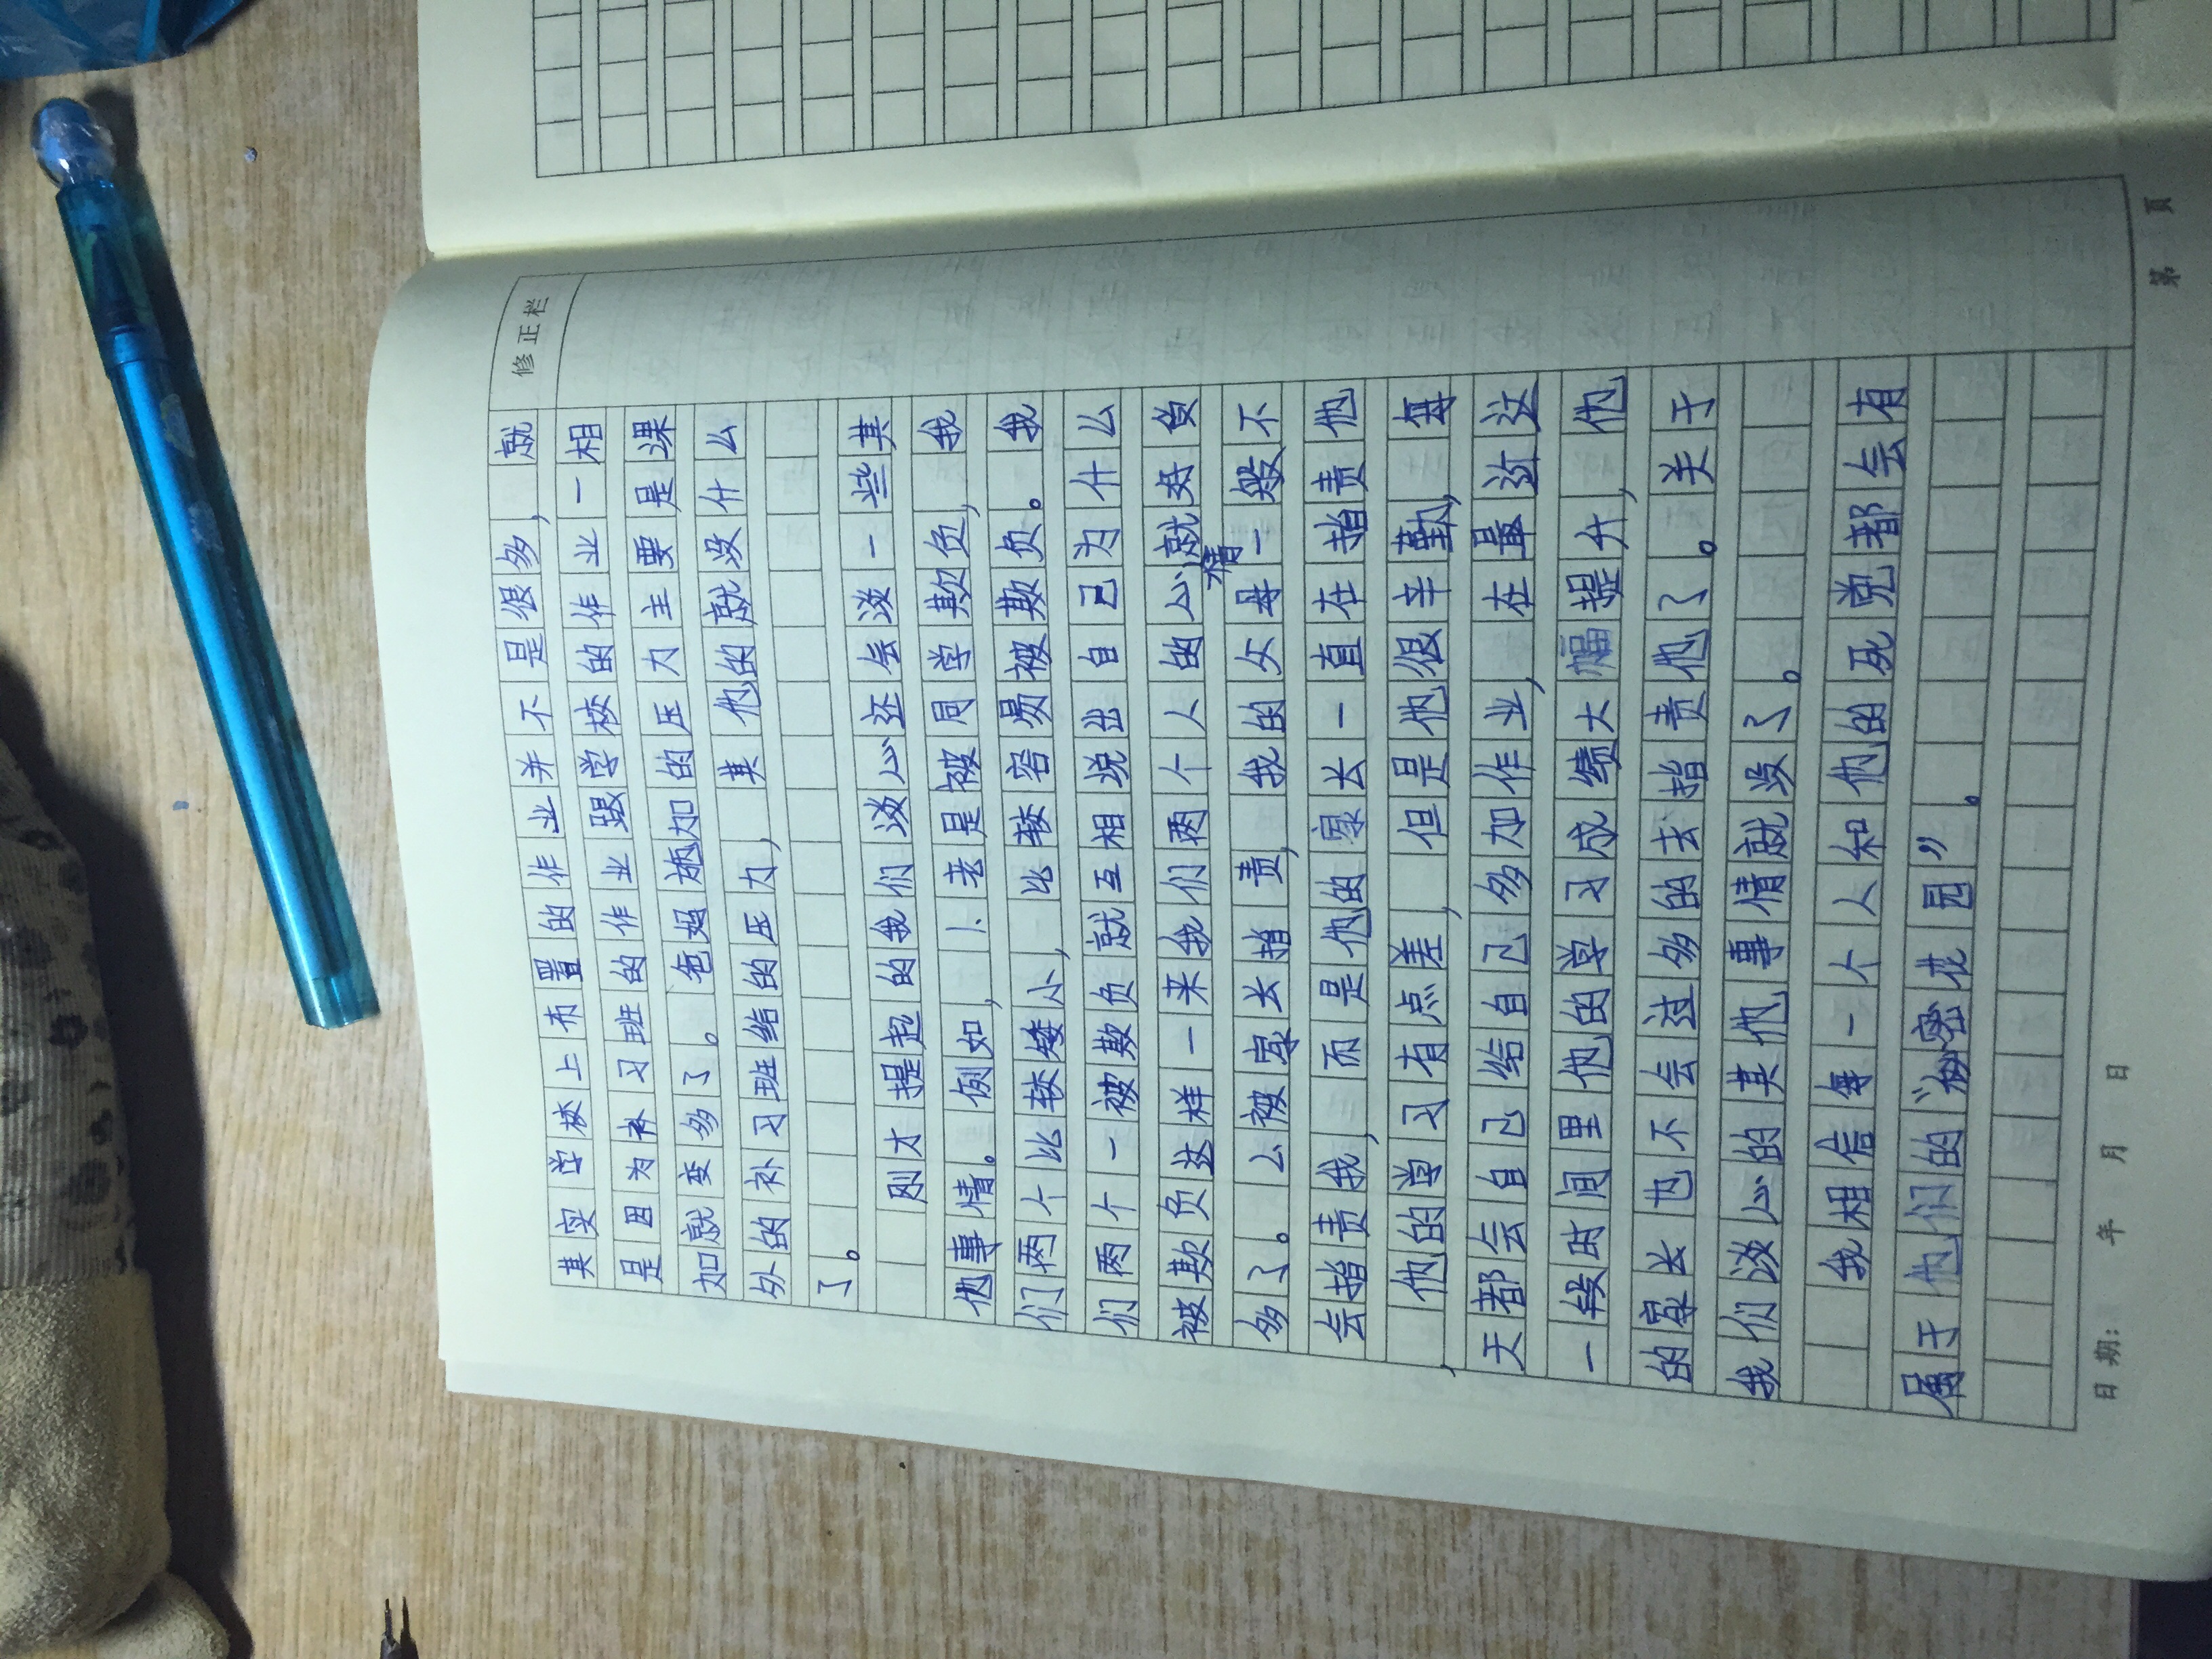 修正栏
其实学校上布置的作业并不是很多，就
是因为补习班的作业跟学校的作业一相
加就变多了。爸妈施加的压力主要是课
外的补习班给的压力，其他的就没什么
了。
刚才提起的我们谈心还会谈一些其
他事情。例如，1.老是被同学欺负，我
们两个比较矮小，比较容易被欺负。我
们两个一被欺负就互相说出自己为什么
被欺负这样一来我们两个人的心情就好
多了。2.被家长指责，我的父母一般不
会指责我，而是他的家长一直在指责他
，他的学习有点差，但是他很辛勤，每
天都会自己给自己多加作业，在最近这
一段时间里他的学习成绩大幅提升，他
的家长也不会过多的去指责他了。关于
我们谈心的其他事情就没了。
我相信每一个人和他的死党都会有
属于他们的“秘密花园”。
日期： 年 月 日 第 页